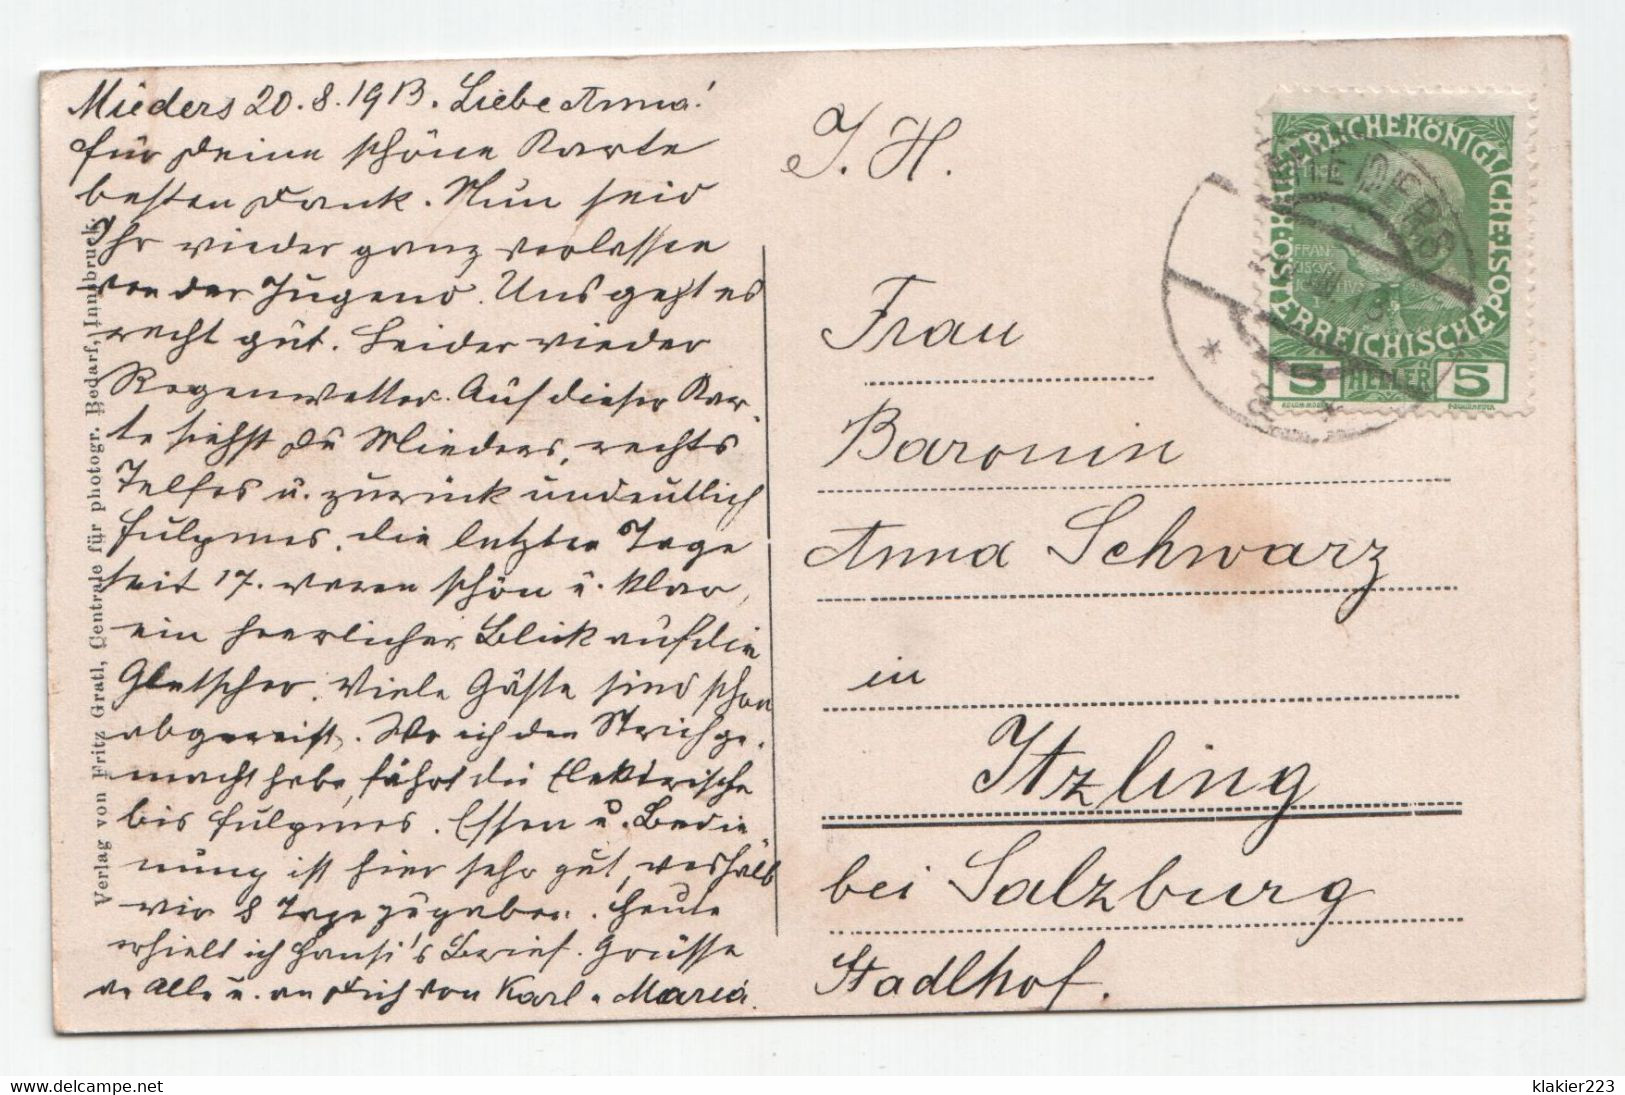 Mieders 20.8.1913. Liebe Anna!
für Deine schöne Karte
besten Dank. Nun seid
Ihr wieder ganz verlassen
von der Jugend. Uns geht es
recht gut. Leider wieder
Regenwetter. Auf dieser Kar-
te siehst Du Mieders, rechts
Telfes u. zurück undeutlich
Fulpmes. Die letzten Tage
seit 17. waren schön u. klar,
ein herrlicher Blick auf die
Gletscher. Viele Gäste sind schon
abgereist. Wo ich den Strich ge-
macht habe, fährt die Elektrische
bis Fulpmes. Essen u. Bedie-
nung ist hier sehr gut, weshalb
wir 8 Tage zugaben. Heute
erhielt ich Hansi's Brief. Grüsse
an Alle u. an Dich von Karl u. Maria.
Verlag von Fritz Gratl, Centrale für photogr. Bedarf, Innsbruck.
I. H.
Frau
Baronin
Anna Schwarz
in
Itzling
bei Salzburg
Stadlhof.
KAISERLICHE KÖNIGLICHE
ÖSTERREICHISCHE POST
5 HELLER 5
MIEDERS
klakier223